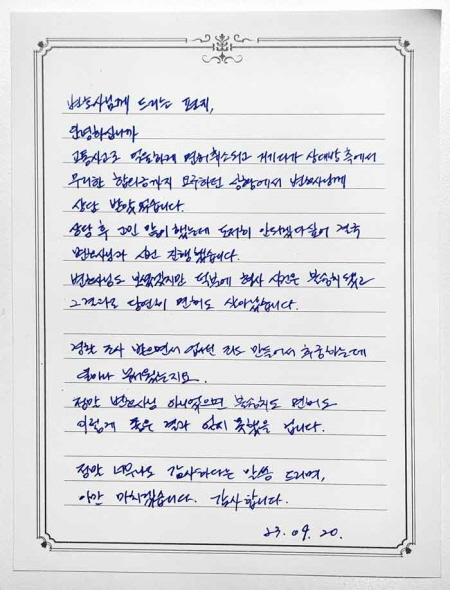 변호사님께 드리는 편지,
안녕하십니까
교통사고로 억울하게 면허취소되고 거기다가 상대방 측에서
무리한 합의금까지 요구하던 상황에서 변호사님께
상담 받았었습니다.
상담 후 고민 많이 했는데 도저히 안되겠다싶어 결국
변호사님과 사건 진행했습니다.
변호사님도 보셨겠지만 덕분에 형사 사건은 불송치 됐고
그 결과로 당연히 면허도 살아났습니다.
경찰 조사 받으면서 없던 죄도 만들어서 추궁하는데
얼마나 무서웠는지요.
정말 변호사님 아니였으면 불송치도 면허도
이렇게 좋은 결과 얻지 못했을 겁니다.
정말 너무나도 감사하다는 말씀 드리며,
이만 마치겠습니다. 감사합니다.
23.09.20.